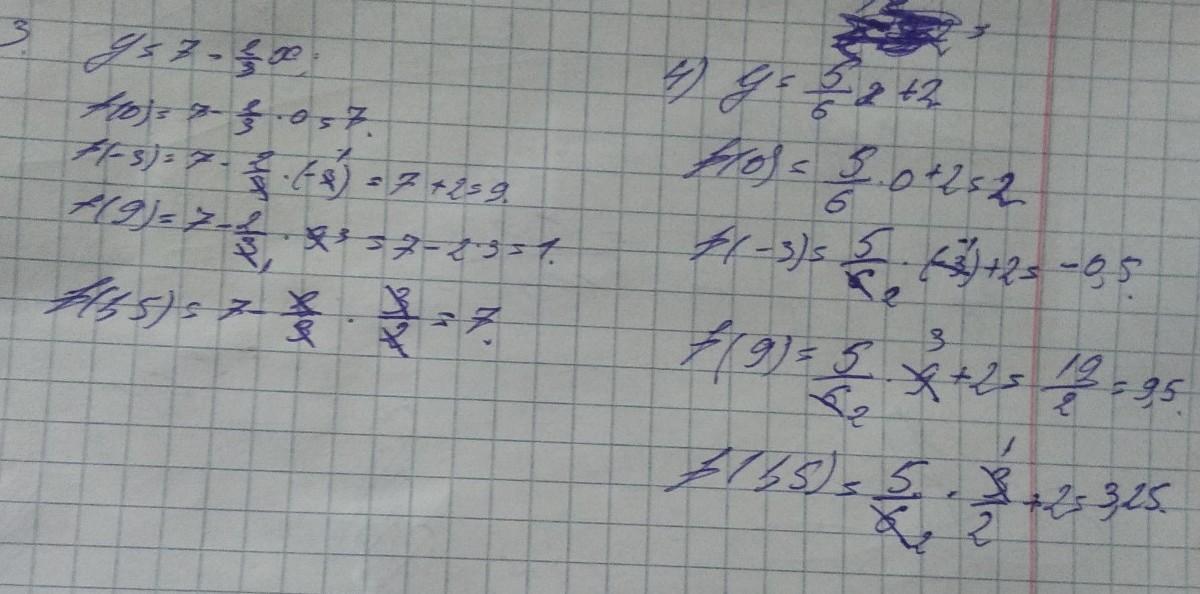 3.
y = 7 - 2/3 x;
f(0) = 7 - 2/3 · 0 = 7.
f(-3) = 7 - 2/3 · (-3) 1 = 7 + 2 = 9.
f(9) = 7 - 2/3 1 · 9 3 = 7 - 2·3 = 1.
f(1,5) = 7 - 2/3 · 3/2 = 7.
4) y = 5/6 x + 2
f(0) = 5/6 · 0 + 2 = 2
f(-3) = 5/6 2 · (-3) -1 + 2 = -0,5.
f(9) = 5/6 2 · 9 3 + 2 = 19/2 = 9,5.
f(1,5) = 5/6 2 · 3 1/2 + 2 = 3,25.